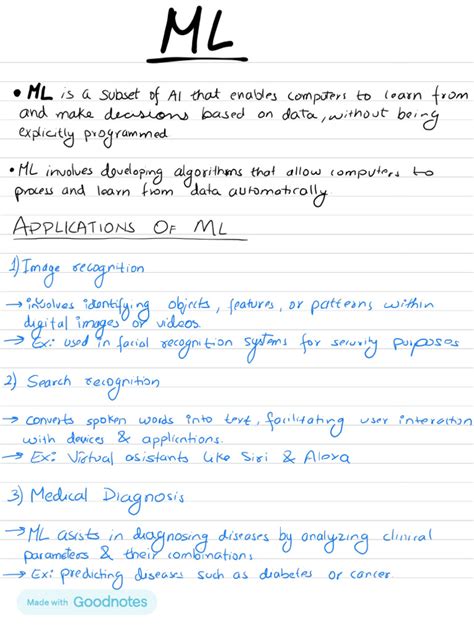 ML
• ML is a subset of AI that enables computers to learn from
and make decisions based on data, without being
explicitly programmed
• ML involves developing algorithms that allow computers to
process and learn from data automatically
APPLICATIONS OF ML
1) Image recognition
→ involves identifying objects, features, or patterns within
digital images or videos.
→ Ex: used in facial recognition systems for security purposes
2) Search recognition
→ converts spoken words into text, facilitating user interaction
with devices & applictions.
→ Ex: Virtual asistants like Siri & Alexa
3) Medical Diagnosis
→ ML asists in diagnosing diseases by analyzing clinical
parameters & their combinations
→ Ex: predicting diseases such as diabetes or cancer.
Made with Goodnotes